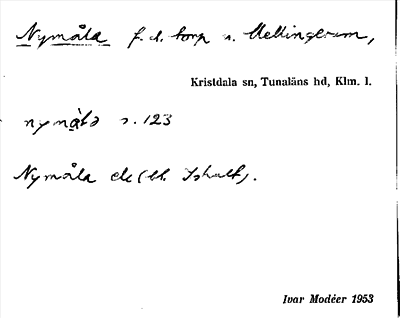 Nymåla f.d. torp u. Mellingerum,
Kristdala sn, Tunaläns hd, Klm. l.
s. 123
Nymåla
Ivar Modéer 1953